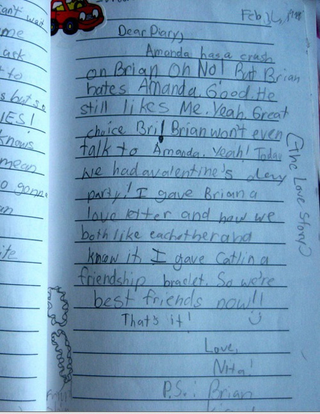 an't wait
me
ask
to
s but s
ES!
knows
mean
o gonna
an
ite
Feb 14,
Dear Diary,
Amanda has a crush
on Brian Oh No! But Brian
hates Amanda. Good. He
still likes Me. Yeah. Great
choice Bri! Brian won't even
talk to Amanda. Yeah! Today
we had a valentine's day
party! I gave Brian a
love letter and now we
both like eachother and
know it. I gave Catlin a
friendship braclet. So we're
best friends now!!
That's it!
Love,
P.S.: Brian
(The Love Story)